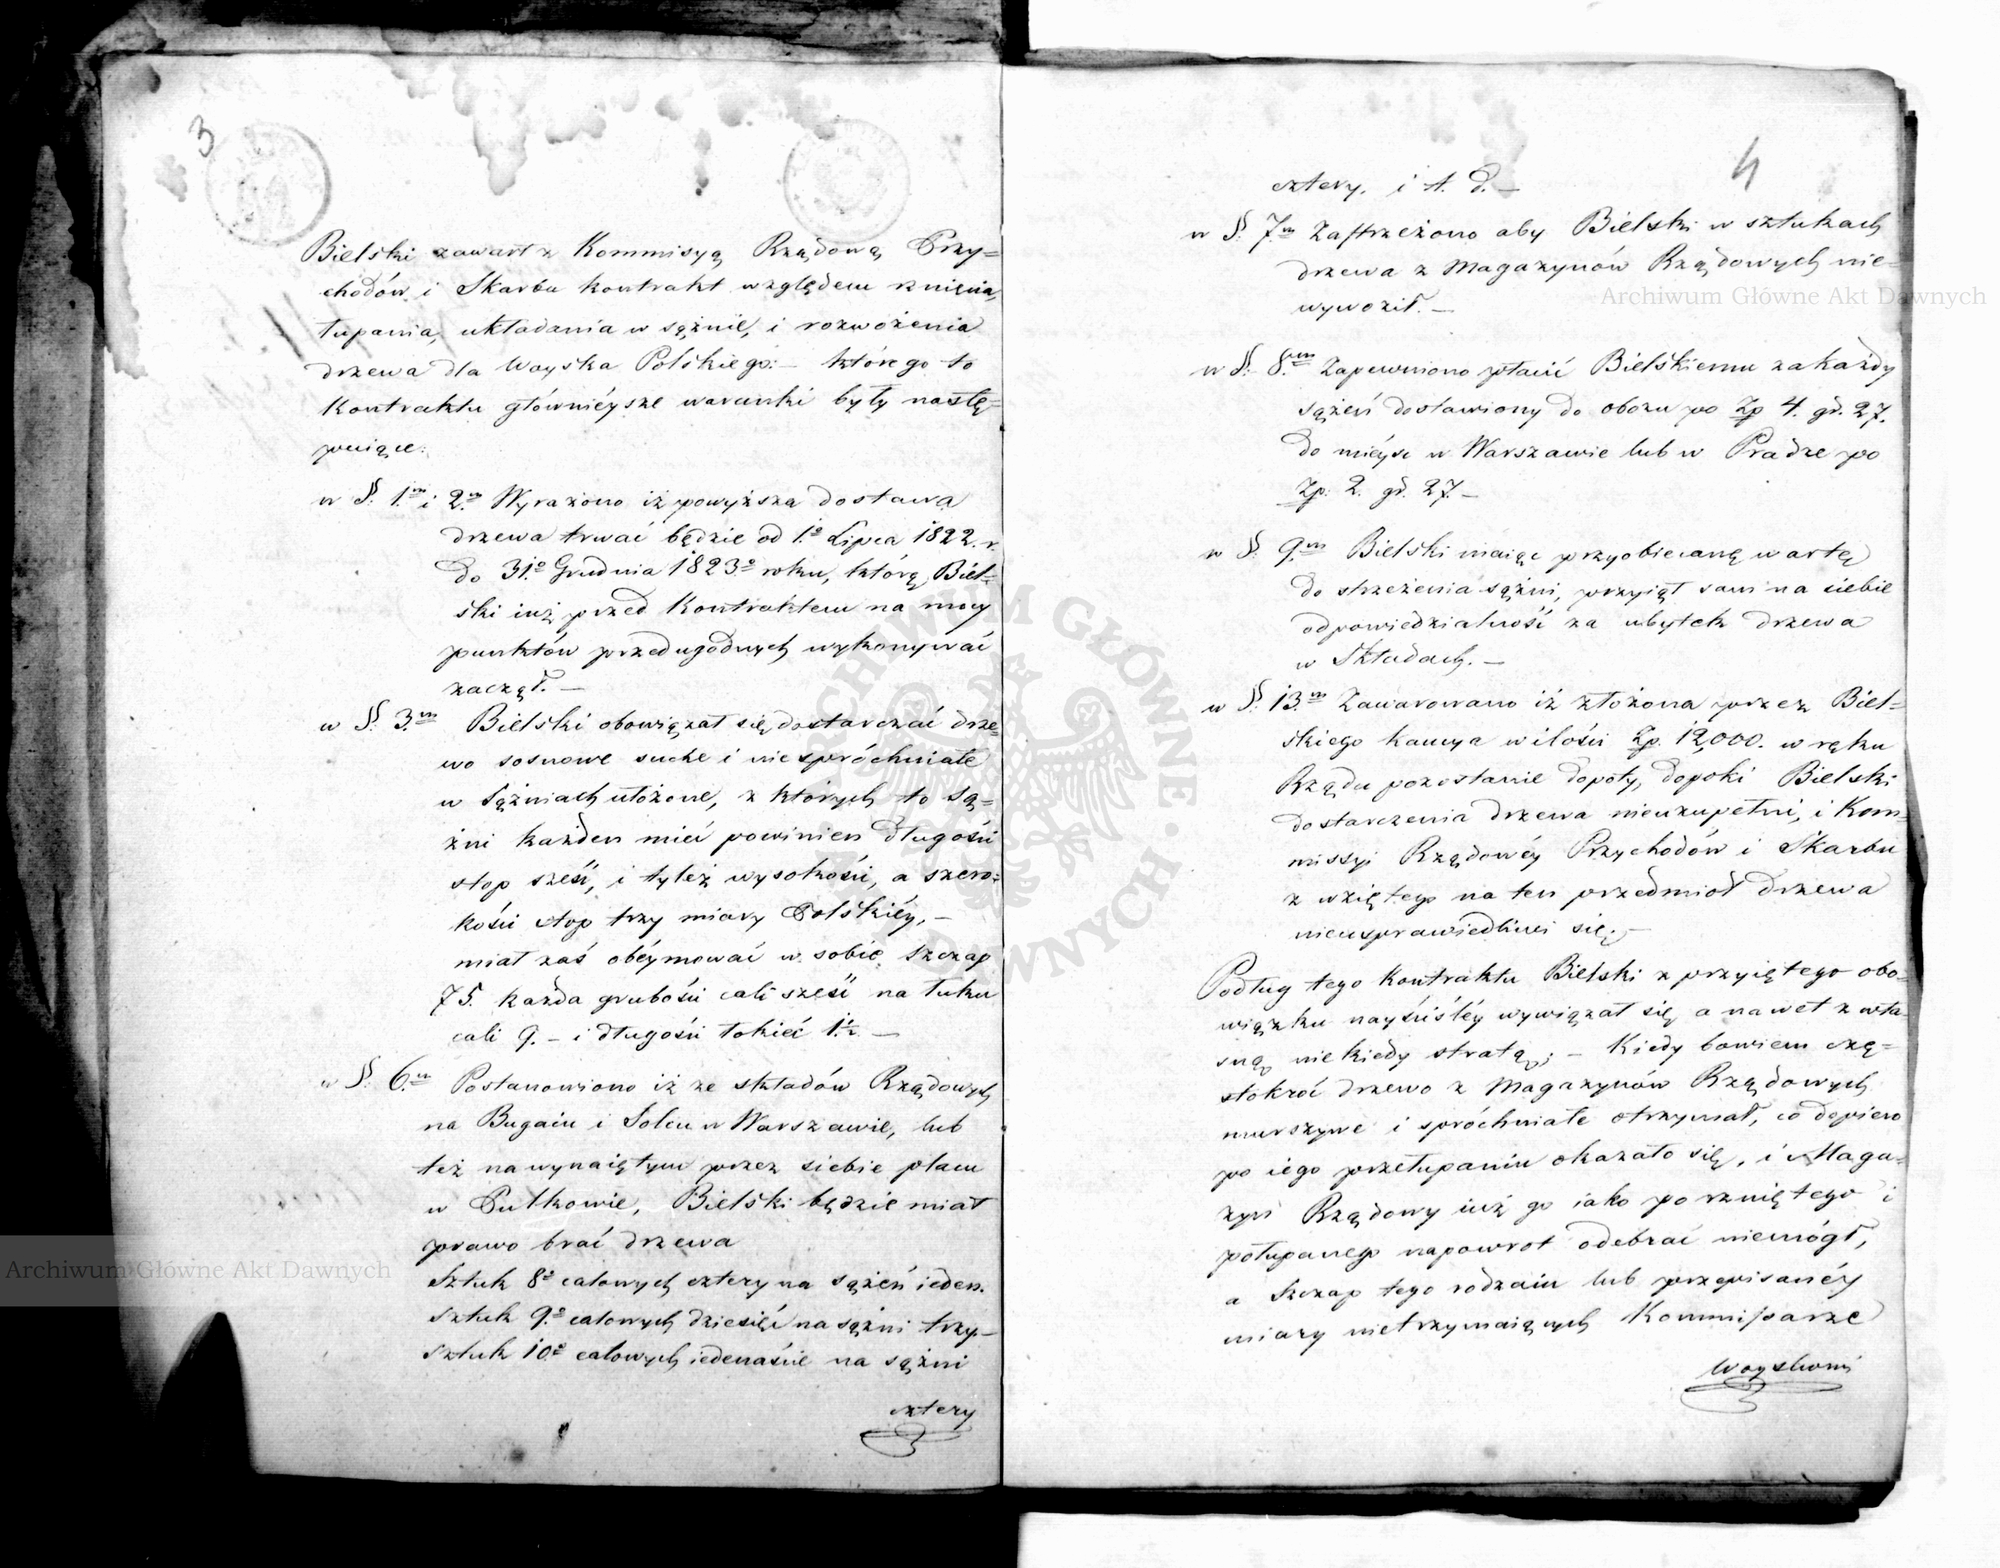 3
Bielski zawarł z Kommisyą Rządową Przy=
chodów i Skarbu kontrakt względem rznięcia,
łupania, układania w sążnie, i rozwożenia
drzewa dla Woyska Polskiego:– którego to
Kontraktu głównieysze warunki były nastę=
puiące:
w §. 1.m i 2.m Wyrażono iż powyższa dostawa
drzewa trwać będzie od 1.o Lipca 1822. r.
do 31.o Grudnia 1823.o roku, którą Biel=
ski iuż przed Kontraktem na mocy
punktów przedugodnych wykonywać
zaczął. –
w §. 3.m Bielski obowiązał się dostarczać drze=
wo sosnowe suche i niespróchniałe
w Sążniach ułożone, z których to Są=
żni każden mieć powinien długości
stop sześć, i tyleż wysokości, a szero=
kości stop trzy miary Polskiéy, –
miał zaś obéymować w sobie Szczap
75. każda grubości cali sześć na łuku
cali 9. – i długości łokieć 1½ –
w §. 6.m Postanowiono iż ze składów Rządowych
na Bugaiu i Solcu w Warszawie, lub
też na wynaiętym przez siebie placu
w Pulkowie, Bielski będzie miał
prawo brać drzewa
Sztuk 8.o calowych cztery na sążeń ieden.
Sztuk 9.o calowych dziesięć na sążni trzy –
Sztuk 10.o calowych iedenaście na sążni
cztery
4
cztery. i t. d. –
w §. 7.m Zastrzeżono aby Bielski w sztukach
drzewa z Magazynów Rządowych nie=
wywoził. –
w §. 8.m Zapewniono płacić Bielskiemu za każdy
sążeń dostawiony do obozu po Zp 4. gr. 27.
do mieysc w Warszawie lub w Pradze po
Zp. 2. gr. 27. –
w §. 9.m Bielski maiąc przyobiecaną wartę
do strzeżenia sążni, przyiął sam na siebie
odpowiedzialność za ubytek drzewa
w Składach. –
w §. 13.m Zawarowano iż złożona przez Biel=
skiego kaucya w ilości Zp. 12,000. w ręku
Rządu pozostanie dopoty, dopoki Bielski
dostarczenia drzewa nieuzupełni, i Kom=
missyi Rządowéy Przychodów i Skarbu
z wziętego na ten przedmiot drzewa
nieusprawiedliwi się. –
Podług tego kontraktu Bielski z przyiętego obo=
wiązku nayściśléy wywiązał się a nawet z wła=
sną niekiedy stratą; – Kiedy bowiem czę=
stokroć drzewo z Magazynów Rządowych
murszywe i spróchniałe otrzymał, co dopiero
po iego przełupaniu okazało się, i Maga=
zyn Rządowy iuż go iako porzniętego i
połupanego napowrot odebrać niemógł,
a Szczap tego rodzaiu lub przepisanéy
miary nietrzymaiących Kommissarze
Woyskowi
Archiwum Główne Akt Dawnych
Archiwum Główne Akt Dawnych
ARCHIWUM GŁÓWNE AKT DAWNYCH